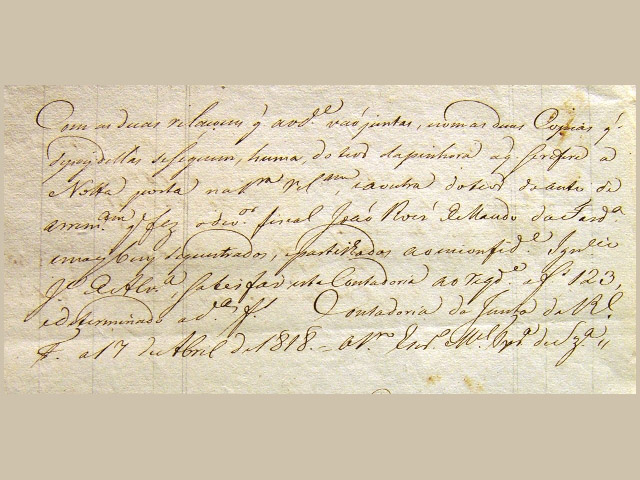 Com as duas relaçoens q̃ a o d.e vaõ juntas, e com as duas Copias q̃
dellas se seguem, huma, do teor da penhora a q̃ se refere a
Notta posta na p.ra rel.am, e a outra do teor do auto de
arrem.am q̃ fez o dev.or fiscal João Roiz de Macedo da Fazd.a
e mais bens sequestrados, e partilhados ao inconfid.e Ignacio
J.e de Alv.a, satisfaz esta Contadoria ao reqd.o a f.s 123,
e determinado a d.as f.s Contadoria da Junta da R.l
F. a 17 de Abril de 1818.